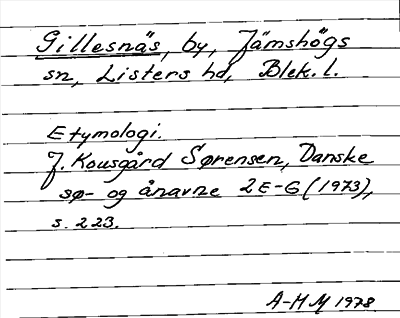 Gillesnäs, by, Jämshögs
sn, Listers hd, Blek. l.
Etymologi.
J. Kousgård Sørensen, Danske
sø- og ånavne 2 E-G (1973),
s. 223.
A-HM 1978